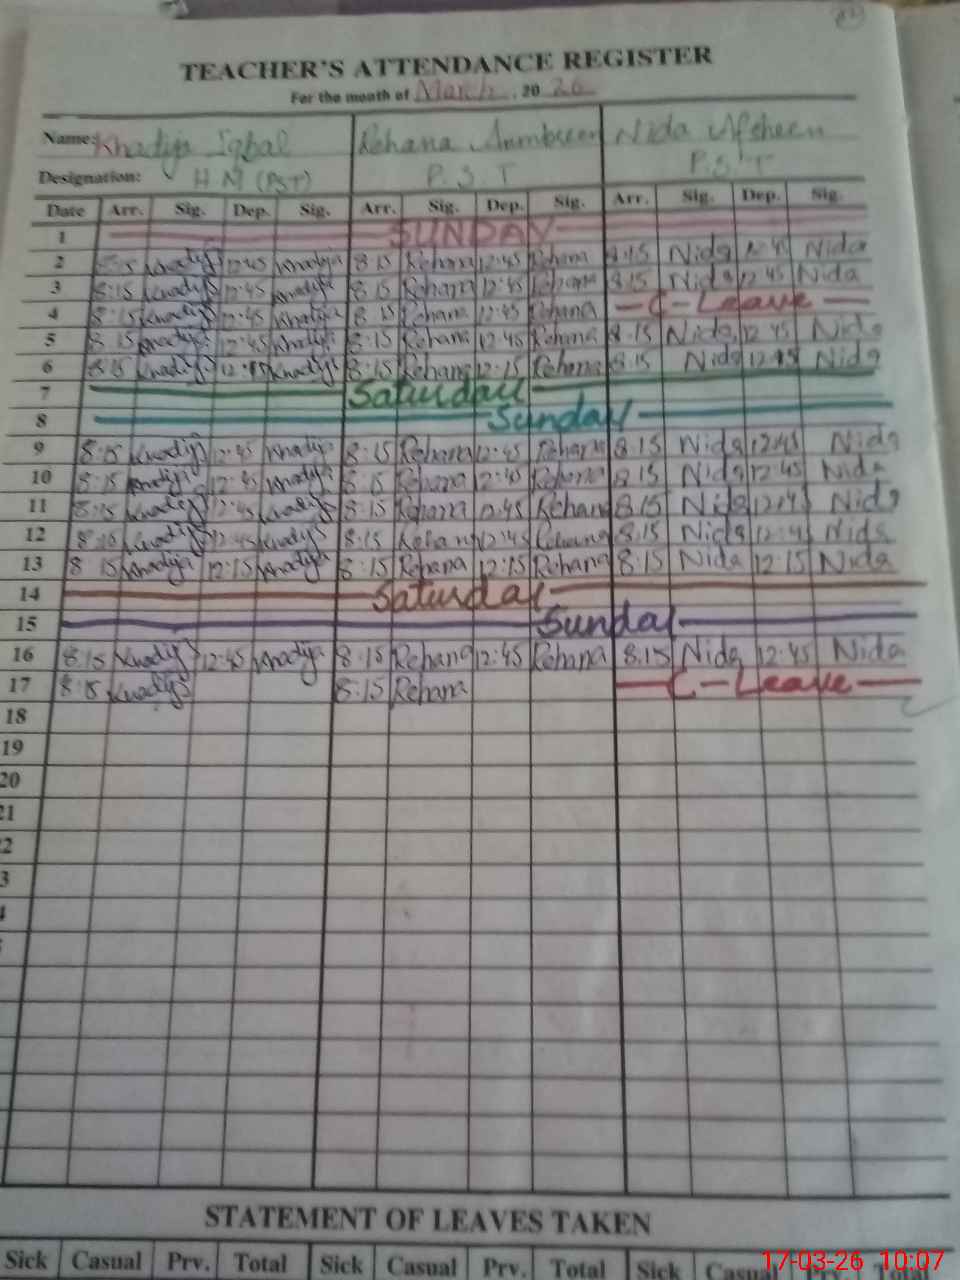 TEACHER'S ATTENDANCE REGISTER
For the month of March, 2026
Name: Khadija Iqbal Rehana Ambreen Nida Afsheen
Designation: H M (PST) P.S.T P.S.T
Date Arr. Sig. Dep. Sig. Arr. Sig. Dep. Sig. Arr. Sig. Dep. Sig.
1 SUNDAY
2 8:15 Khadija 12:45 Khadija 8:15 Rehana 12:45 Rehana 8:15 Nida 12:45 Nida
3 8:15 Khadija 12:45 Khadija 8:15 Rehana 12:45 Rehana 8:15 Nida 12:45 Nida
4 8:15 Khadija 12:45 Khadija 8:15 Rehana 12:45 Rehana C-Leave
5 8:15 Khadija 12:45 Khadija 8:15 Rehana 12:45 Rehana 8:15 Nida 12:45 Nida
6 8:15 Khadija 12:15 Khadija 8:15 Rehana 12:15 Rehana 8:15 Nida Nida
7 Saturday
8 Sunday
9 8:15 Khadija 12:45 Khadija 8:15 Rehana 12:45 Rehana 8:15 Nida 12:45 Nida
10 8:15 Khadija 12:45 Khadija 8:15 Rehana 12:45 Rehana 8:15 Nida 12:45 Nida
11 8:15 Khadija 12:45 Khadija 8:15 Rehana 12:45 Rehana 8:15 Nida 12:45 Nida
12 8:15 Khadija 12:45 Khadija 8:15 Rehana 12:45 Rehana 8:15 Nida 12:45 Nida
13 8:15 Khadija 12:15 Khadija 8:15 Rehana 12:15 Rehana 8:15 Nida 12:15 Nida
14 Saturday
15 Sunday
16 8:15 Khadija 12:45 Khadija 8:15 Rehana 12:45 Rehana 8:15 Nida 12:45 Nida
17 8:15 Khadija 8:15 Rehana C-Leave
18
19
20
21
2
3
4
STATEMENT OF LEAVES TAKEN
Sick Casual Prv. Total Sick Casual Prv. Total Sick Casual
17-03-26 10:07